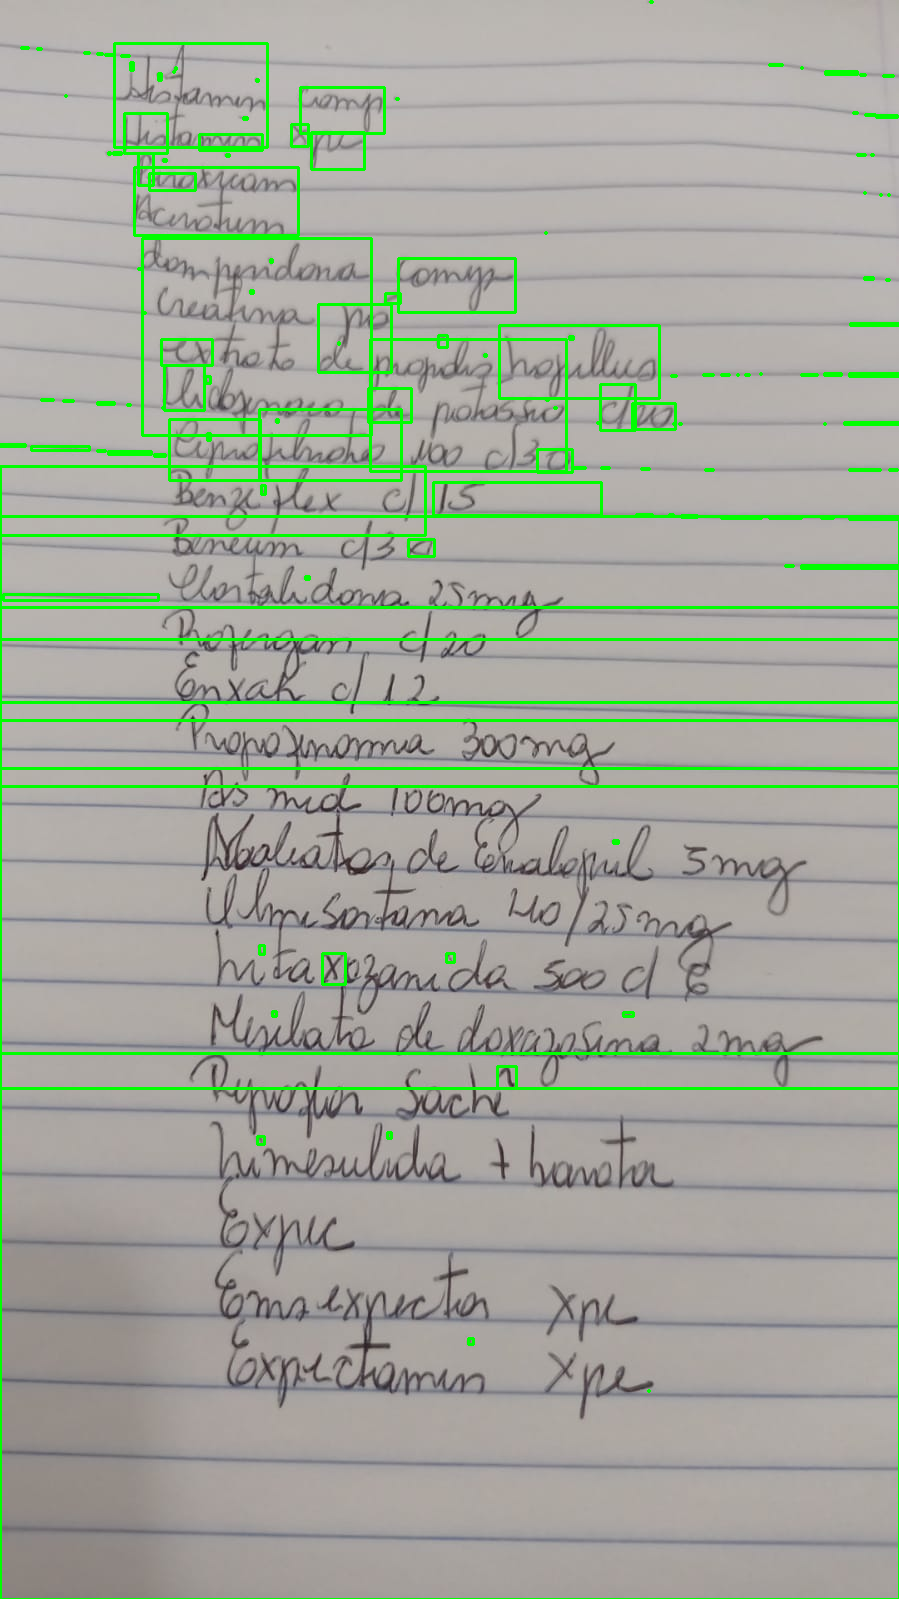 Histamin comp
Histamin xpe
Piroxicam
Acnotum
domperidona comp
Creatina pó
extrato de propolis
de potassio c/20
100 c/30
Benziflex c/ 15
Beneum c/30
Clortalidona 25mg
c/ 20
Enxak c/ 12
300mg
100mg
de Enalapril 5mg
Olmesartana 40/25mg
nitaxozanida 500 c/ 6
Mesilato de doxazosina 2mg
Repoflor Sachê
nimesulida +
Expec
Emsexpector xpe
Expectamin xpe